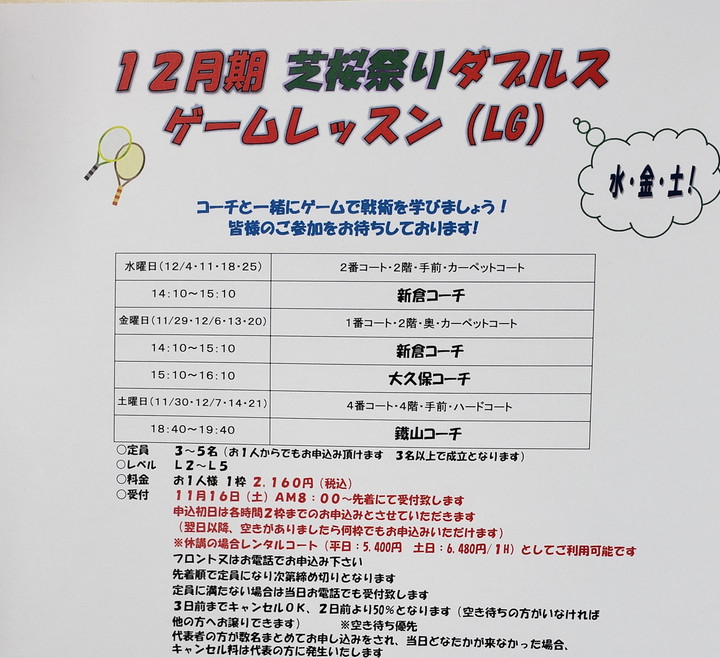 12月期 芝桜祭りダブルス
ゲームレッスン（LG）
水・金・土！
コーチと一緒にゲームで戦術を学びましょう！
皆様のご参加をお待ちしております!
水曜日(12/4・11・18・25) 2番コート・2階・手前・カーペットコート
14:10～15:10 新倉コーチ
金曜日(11/29・12/6・13・20) 1番コート・2階・奥・カーペットコート
14:10～15:10 新倉コーチ
15:10～16:10 大久保コーチ
土曜日(11/30・12/7・14・21) 4番コート・4階・手前・ハードコート
18:40～19:40 鐵山コーチ
○定員 3～5名（お1人からでもお申込み頂けます 3名以上で成立となります）
○レベル L2～L5
○料金 お1人様 1枠 2,160円（税込）
○受付 11月16日（土）AM8：00～先着にて受付致します
申込初日は各時間2枠までのお申込みとさせていただきます
（翌日以降、空きがありましたら何枠でもお申込みいただけます）
※休講の場合レンタルコート（平日：5,400円 土日：6,480円/1H）としてご利用可能です
フロント又はお電話でお申込み下さい
先着順で定員になり次第締め切りとなります
定員に満たない場合は当日お電話でも受付致します
3日前までキャンセルOK、2日前より50％となります（空き待ちの方がいなければ
他の方へお譲りできます） ※空き待ち優先
代表者の方が数名まとめてお申し込みをされ、当日どなたかが来なかった場合、
キャンセル料は代表の方に発生いたします